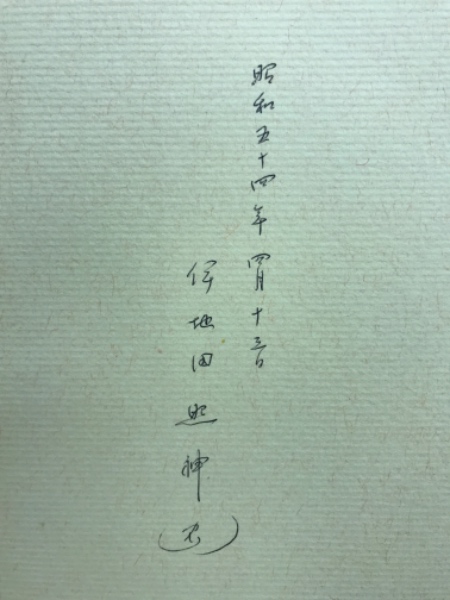 昭和五十四年 四月十三日
伊地田照神